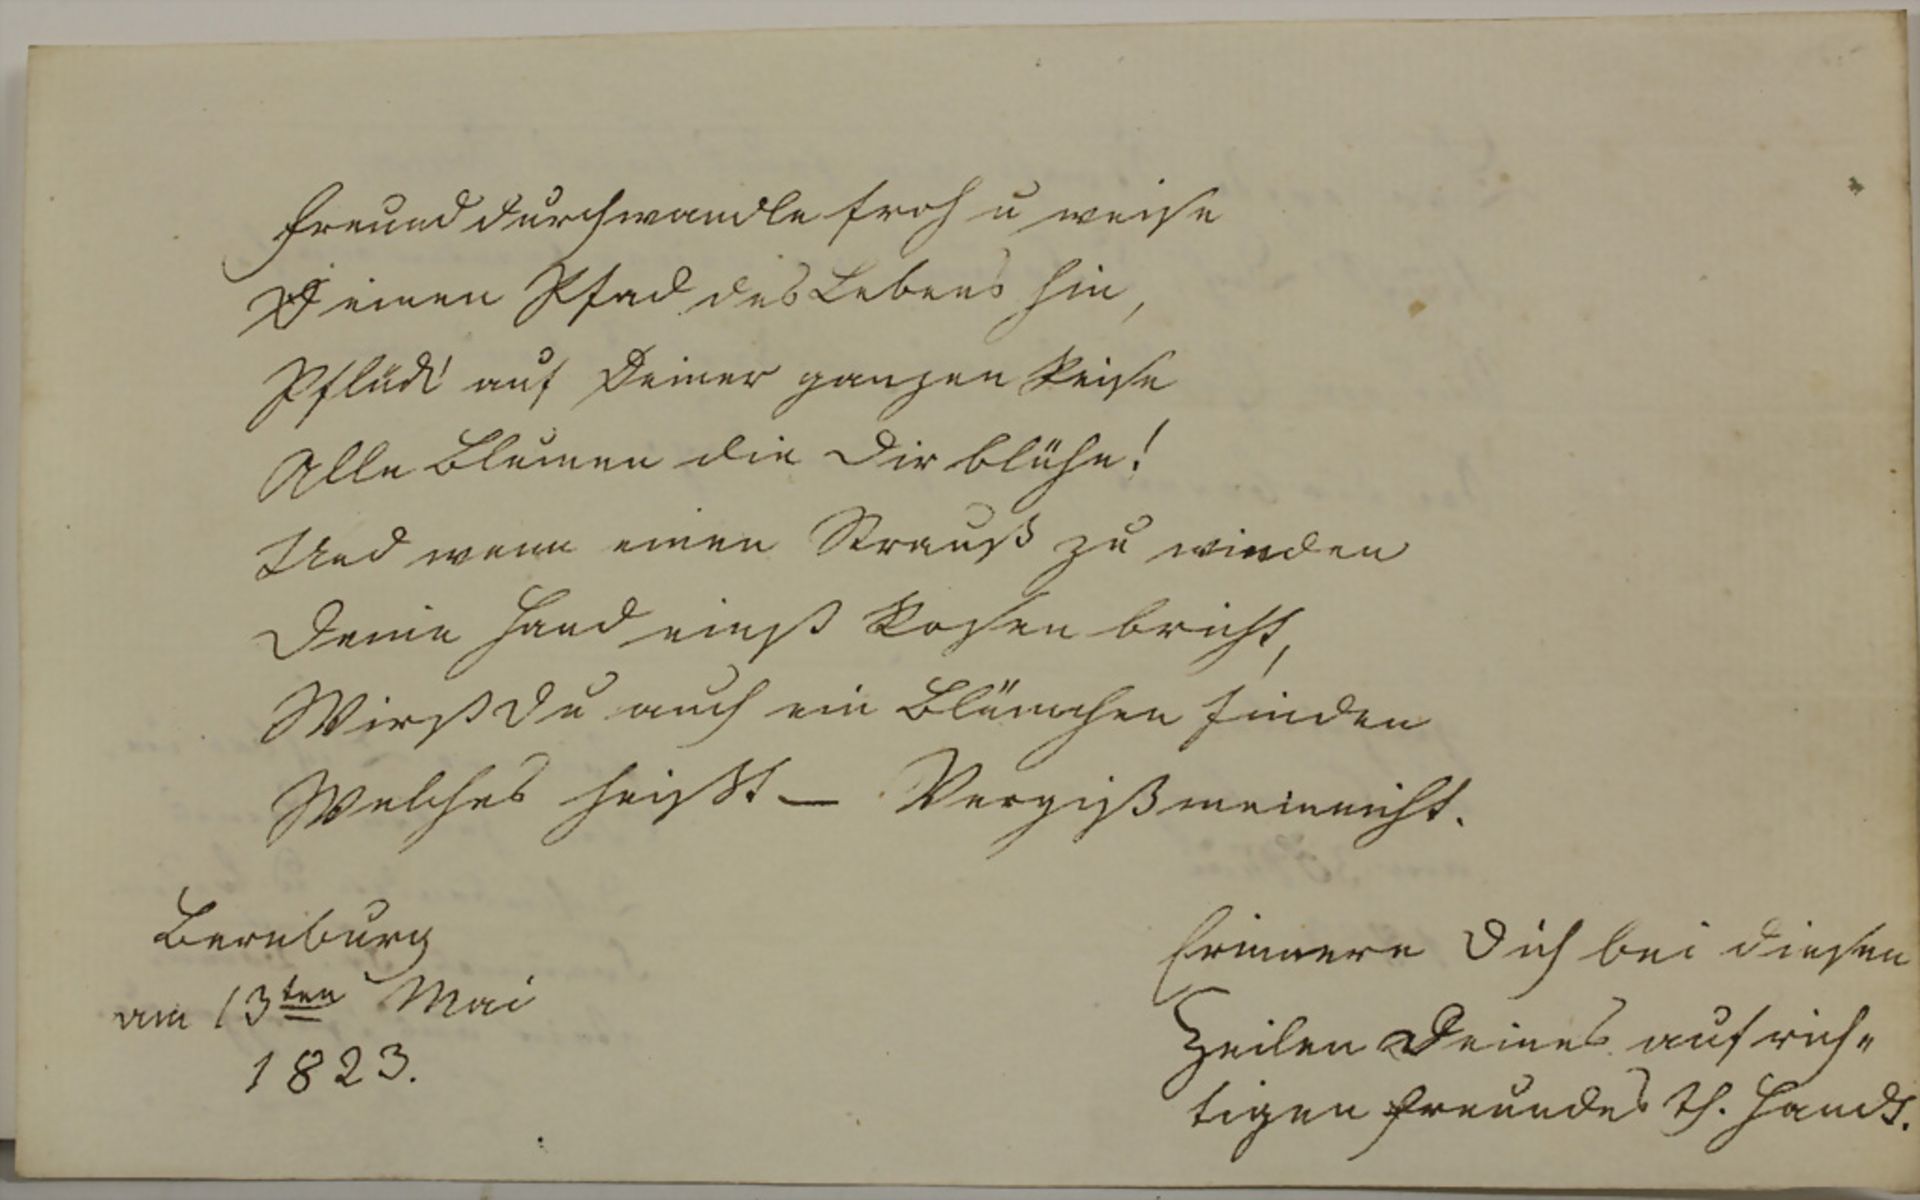 Freund durchwandle froh u weise
Deinen Pfad des Lebens hin,
Pflück' auf Deiner ganzen Reise
Alle Blumen die Dir blühn!
Und wenn einen Strauß zu winden
Deine Hand einst Rosen bricht,
Wirst Du auch ein Blümchen finden
Welches heißt — Vergißmeinnicht.
Bernburg
am 13ten Mai
1823.
Erinnere Dich bei diesen
Zeilen Deines aufrich-
tigen Freundes Th.